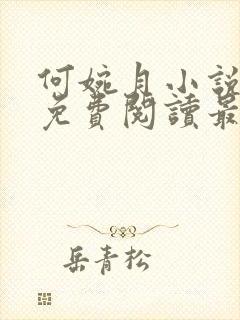 何婉月小說
免費閱讀最
岳青松